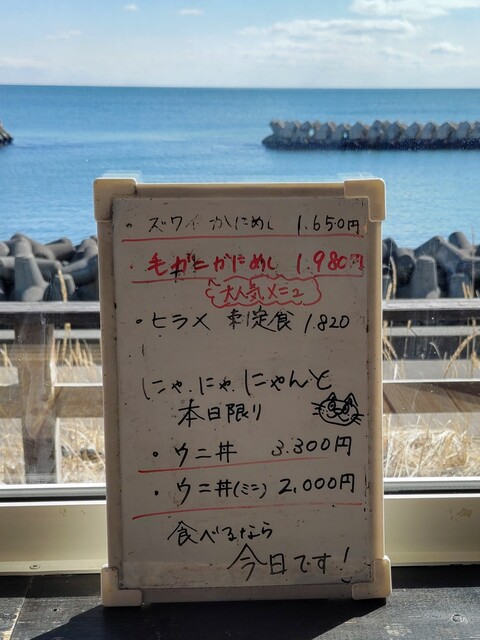 ・ズワイかにめし 1.650円
・毛ガニかにめし 1.980円
大人気メニュ
・ヒラメ刺定食 1.820
にゃ.にゃ.にゃんと
本日限り
・ウニ丼 3.300円
・ウニ丼(ミニ) 2.000円
食べるなら
今日です!